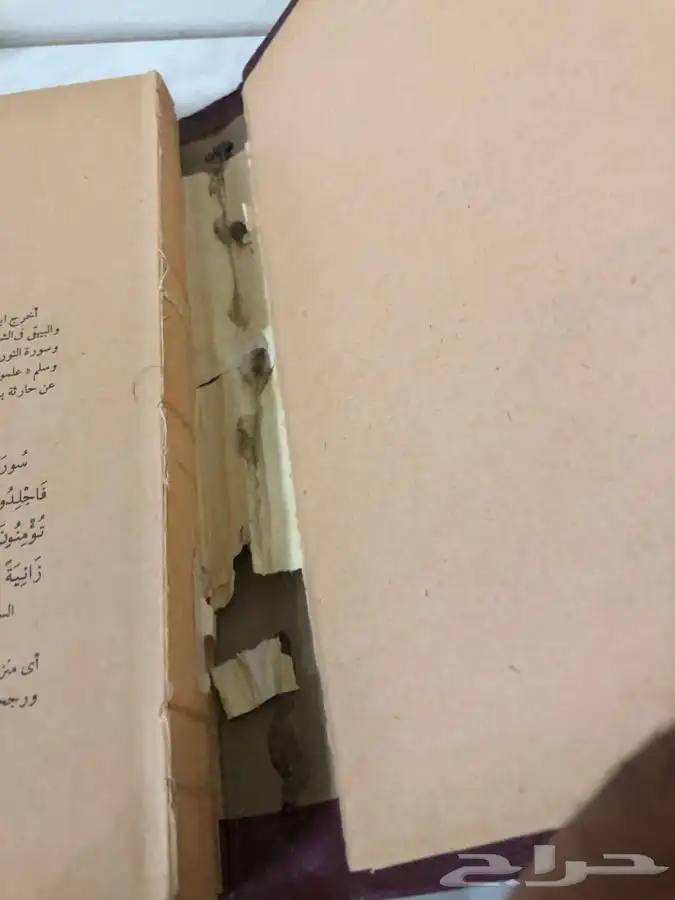 أخرج
والبيهقى فى
وسورة النور
وسلم « علمو
عن حارثة
سُورَ
فَاجْلِدُو
تُؤْمِنُونَ
زَانِيَةً
الس
أى منز
ورجح
حراج